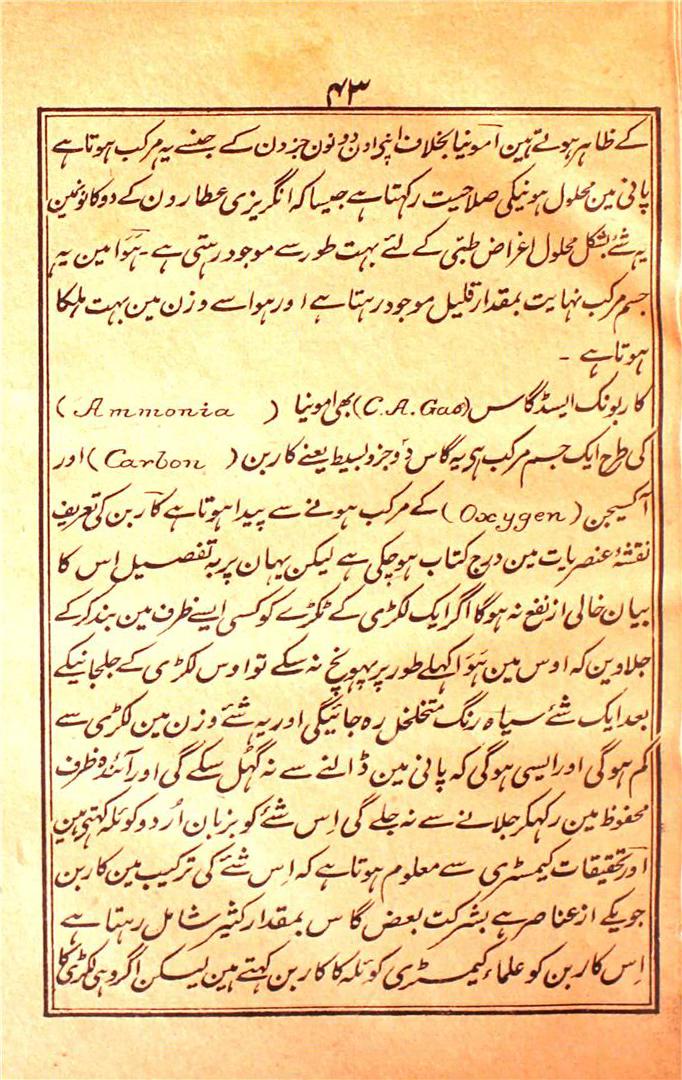 ۴۳
کے ظاہر ہوتے ہین آمونیا بخلاف اپنی اون دونون جزون کے جنسے یہ مرکب ہوتا ہے
پانی مین محلول ہونیکی صلاحیت رکہتا ہے جیسا کہ انگریزی عطارون کے دوکانونمین
یہ شئے بشکل محلول اغراض طبّی کے لئے بہت طور سے موجود رہتی ہے ۔ ہَوَا مین یہ
جسم مرکب نہایت بمقدار قلیل موجود رہتا ہے اور ہوا سے وزن مین بہت ہلکا
ہوتا ہے ۔
کاربونک ایسڈ گاس (C.A. Gas) بھی امونیا ( Ammonia )
کی طرح ایک جسم مرکب ہی یہ گاس دَو جزو بسیط یعنے کاربن ( Carbon ) اور
آکسیجن ( Oxygen ) کے مرکب ہونے سے پیدا ہوتا ہے کاربن کی تعریف
نقشۂ عنصریات مین درج کتاب ہوچکی ہے لیکن یہان پر بہ تفصیل اِس کا
بیان خالی از نفع نہ ہوگا اگر ایک لکڑی کے ٹکڑے کو کسی ایسے ظرف مین بند کر کے
جلاوین کہ اوس مین ہَوَا کہلے طور پر پہونچ نہ سکے تو اوس لکڑی کے جلجانیکے
بعد ایک شئے سیاہ رنگ متخلخل رہ جائیگی اور یہ شئے وزن مین لکڑی سے
کم ہوگی اور ایسی ہوگی کہ پانی مین ڈالنے سے نہ گہُل سکے گی اور آئندہ ظرف
محفوظ مین رکہکر جلانے سے نہ جلے گی اِس شئے کو بزبان اُردو کوئلہ کہتی ہین
اور تحقیقات کیمسٹری سے معلوم ہوتا ہے کہ اِس شئے کی ترکیب مین کاربن
جو یکے از عناصر ہے بشرکت بعض گاس بمقدار کثیر شامل رہتا ہے
اِس کاربن کو علماء کیمسٹری کوئلہ کا کاربن کہتے ہین لیکن اگر وہی لکڑی کا